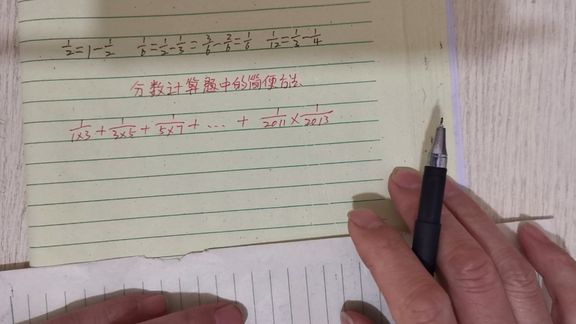 1/2=1-1/2 1/6=1/2-1/3=3/6-2/6=1/6 1/12=1/3-1/4
分数计算题中的简便方法
1/1×3+1/3×5+1/5×7+…+1/2011×1/2013